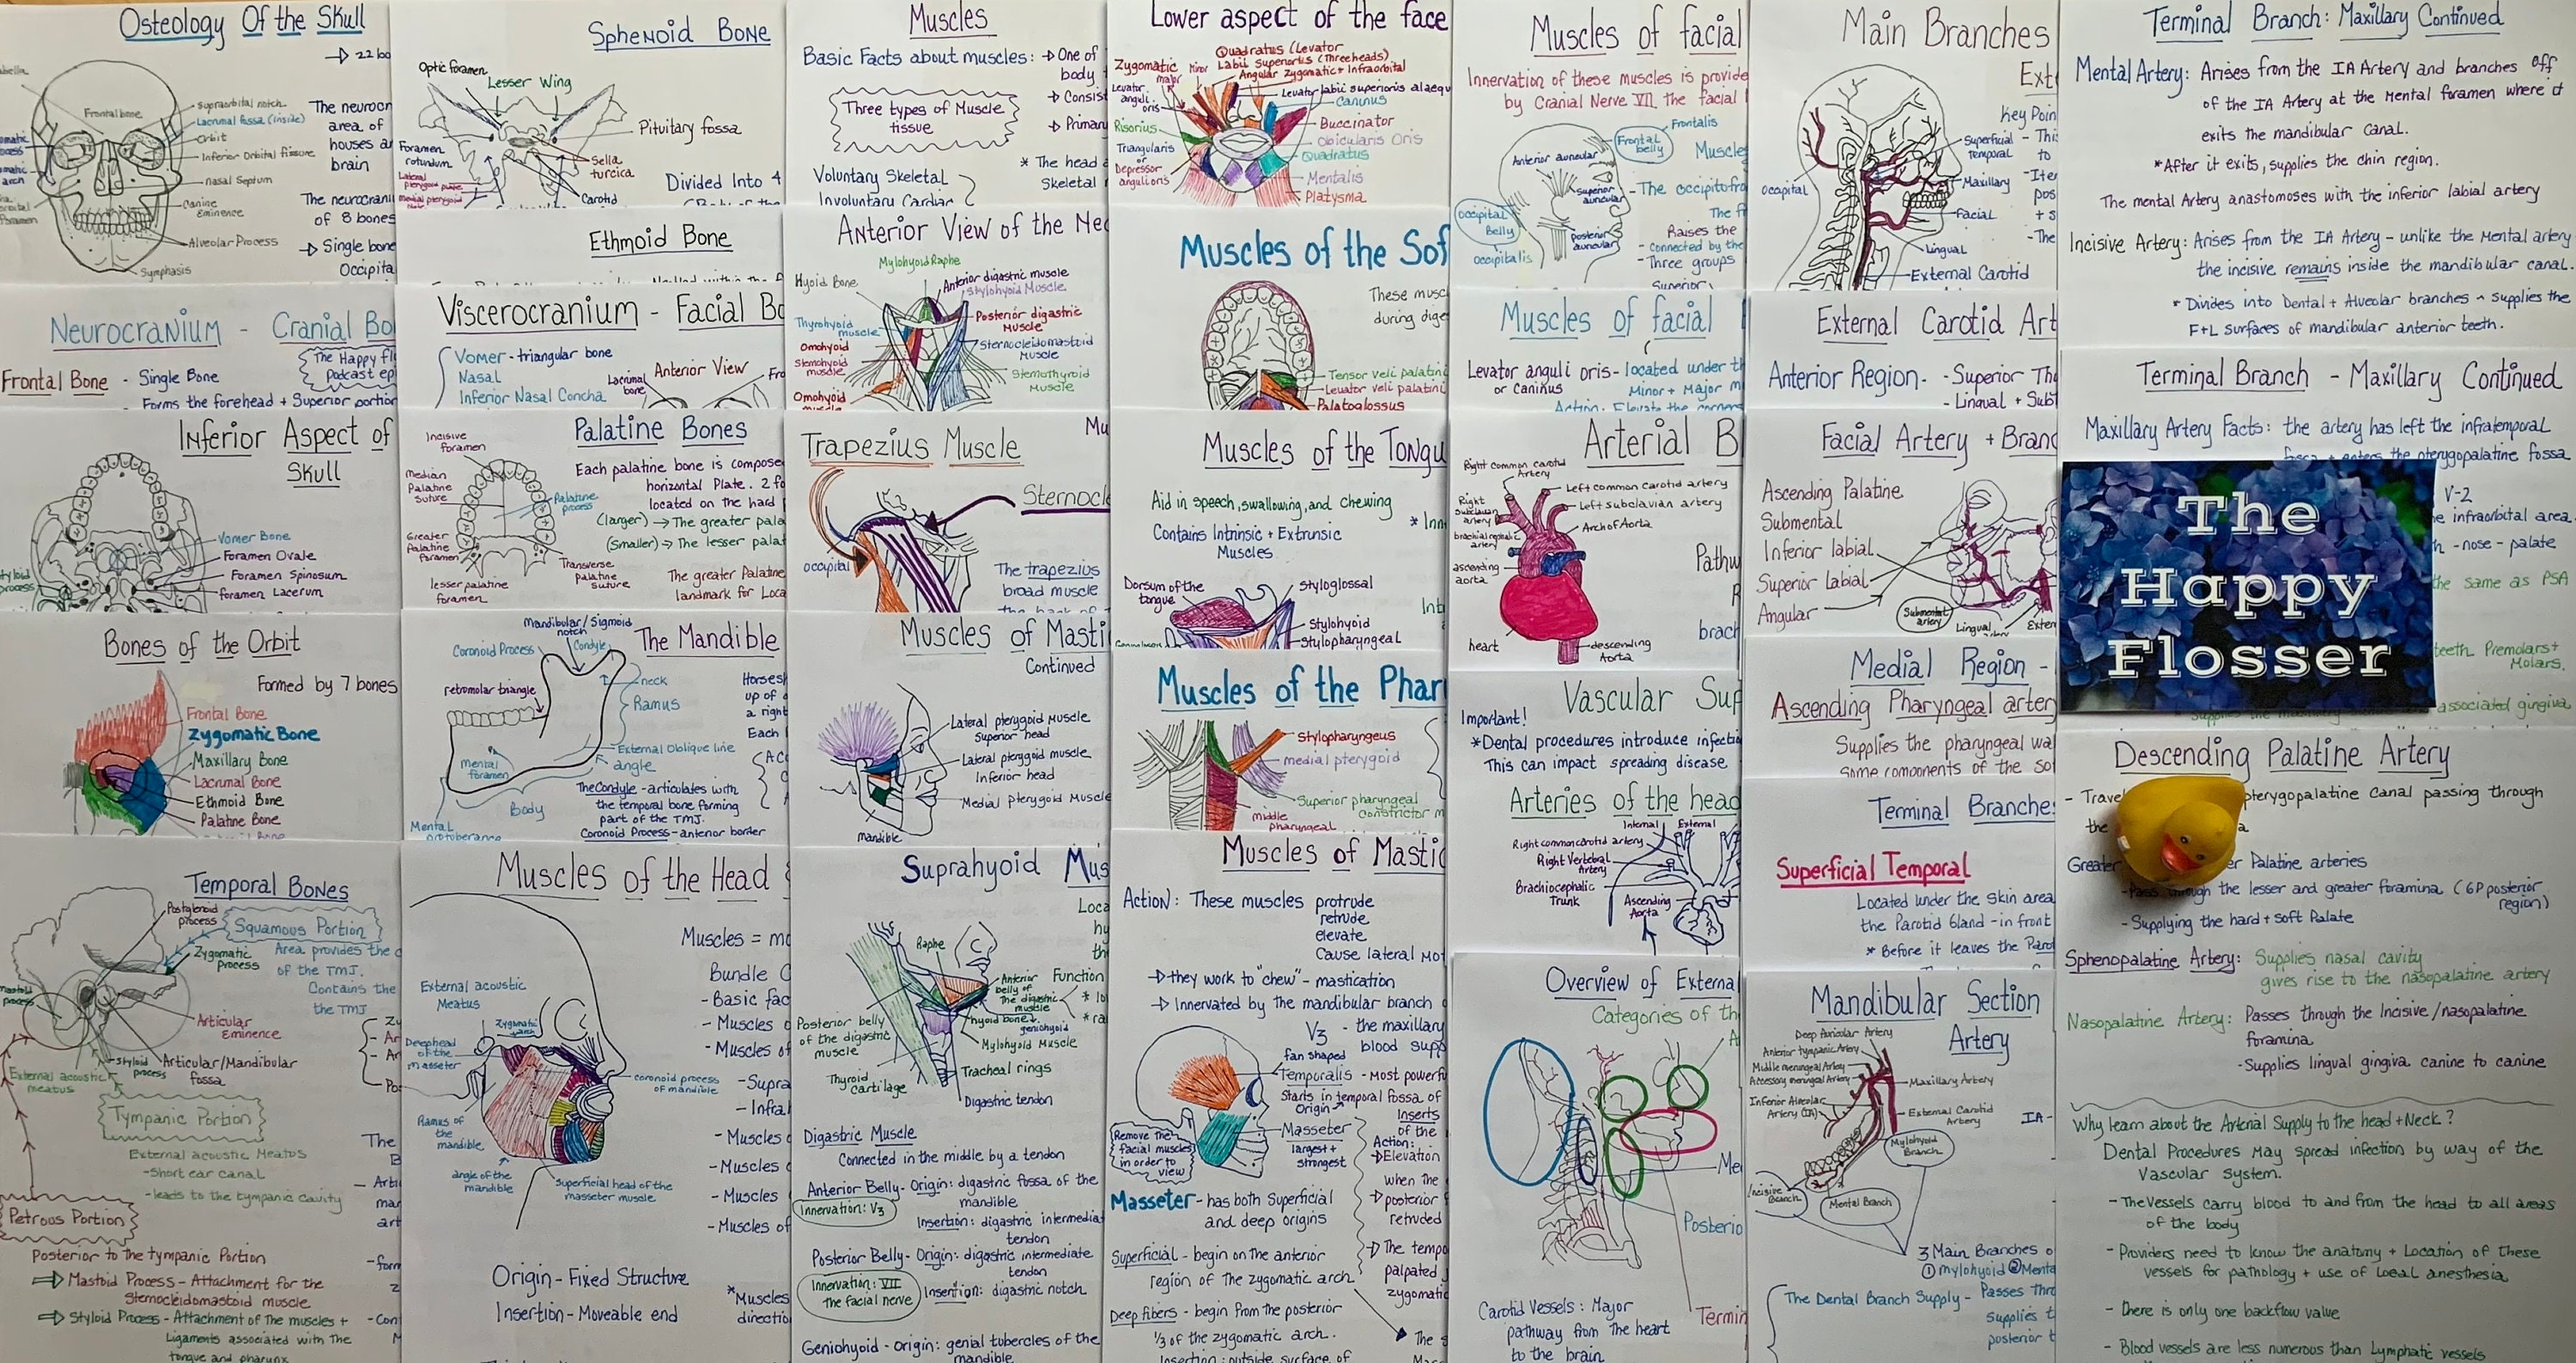 Osteology Of the Skull
Frontal bone
Supraorbital notch
Lacrumal fossa (inside)
Orbit
Inferior Orbital fissure
nasal Septum
Canine
Eminence
Alveolar Process
Symphasis
The neurocr
area of
houses a
brain
The neurocrani
of 8 bones
Single bone
Occipita
Neurocranium - Cranial Bo
The Happy fl
Podcast ep
Frontal Bone - Single Bone
- Forms the forehead + Superior portion
Inferior Aspect of
Skull
Vomer Bone
Foramen Ovale
Foramen Spinosum
foramen Lacerum
Bones of the Orbit
Formed by 7 bones
Frontal Bone
Zygomatic Bone
Maxillary Bone
Lacrumal Bone
Ethmoid Bone
Palatine Bone
Temporal Bones
Postglenoid
process
Squamous Portion
Zygomatic
Process
Area provides the
of the TMJ.
Contains the
the TMJ
Articular
Eminence
Styloid
process
Articular/Mandibular
fossa
External acoustic
meatus
Tympanic Portion
External acoustic Meatus
-Short ear canal
-leads to the tympanic cavity
Petrous Portion
Posterior to the tympanic Portion
Mastoid Process - Attachment for the
Sternocleidomastoid muscle
Styloid Process - Attachment of the muscles +
Ligaments associated with the
tongue and pharynx
Sphenoid Bone
Optic foramen
Lesser Wing
Pituitary fossa
Foramen
rotundum
Sella
turcica
Carotid
Divided Into 4
Ethmoid Bone
Viscerocranium - Facial Bo
Vomer - triangular bone
Nasal
Inferior Nasal Concha
Lacrimal
bone
Anterior View
Palatine Bones
Incisive
foramen
Median
Palatine
Suture
Palatine
process
Greater
Palatine
Foramen
lesser palatine
foramen
Transverse
Palatine
suture
Each palatine bone is compose
horizontal Plate. 2 fo
located on the hard
(larger) → The greater pala
(smaller) → The lesser palat
The greater Palatine
landmark for Loca
The Mandible
Mandibular/Sigmoid
notch
Coronoid Process
Condyle
retromolar triangle
neck
Ramus
External Oblique line
angle
mental
foramen
Body
Mental
protoberance
Horsesh
up of
a right
Each
The Condyle - articulates with
the temporal bone forming
part of the TMJ.
Coronoid Process - anterior border
Muscles of the Head
Muscles = mo
Bundle
- Basic fac
- Muscles
- Muscles of
- Supra
- Infra
- Muscles
- Muscles
- Muscles
- Muscles of
External acoustic
Meatus
Zygomatic
arch
Deep head
of the
masseter
coronoid process
of mandible
Ramus of
the
mandible
angle of the
mandible
Superficial head of the
masseter muscle
Origin - Fixed Structure
Insertion - Moveable end
*Muscles
directio
Muscles
Basic Facts about muscles: → One of
body
→ Consist
→ Primary
Three types of Muscle
tissue
* The head
Skeletal
Voluntary Skeletal
Involuntary Cardiac
Anterior View of the Nec
Mylohyoid Raphe
Hyoid Bone
Anterior digastric muscle
Stylohyoid Muscle
Thyrohyoid
muscle
Posterior digastric
Muscle
Omohyoid
Sternohyoid
muscle
Sternocleidomastoid
Muscle
Sternothyroid
Muscle
Omohyoid
Trapezius Muscle
Sternocl
occipital
The trapezius
broad muscle
Muscles of Masti
Continued
Lateral pterygoid Muscle
Superior head
Lateral pterygoid muscle
Inferior head
Medial pterygoid Muscle
Mandible
Suprahyoid Mus
Raphe
Anterior
belly of
the digastric
muscle
Function
hyoid bone
geniohyoid
Mylohyoid Muscle
Posterior belly
of the digastric
muscle
Thyroid
Cartilage
Tracheal rings
Digastric tendon
Digastric Muscle
Connected in the middle by a tendon
Anterior Belly - Origin: digastric fossa of the
mandible
Innervation: V3
Insertion: digastric intermedia
tendon
Posterior Belly - Origin: digastric intermediate
tendon
Innervation: VII
the facial nerve
Insention: digastric notch
Geniohyoid - origin: genial tubercles of the
mandible
Lower aspect of the face
Quadratus (Levator
Labii Superioris (Three heads)
Angular Zygomatic + Infraorbital
Zygomatic
major
Minor
Levator
anguli
oris
Levator labii superioris alaequ
Caninus
Risorius
Buccinator
Obicularis Oris
Triangularis
or
Depressor
anguli oris
Quadratus
Mentalis
Platysma
Muscles of the Sof
These musc
during dige
Tensor veli palatini
Levator veli palatini
Palatoglossus
Muscles of the Tongu
Aid in speech, swallowing, and chewing
Contains Intrinsic + Extrunsic
Muscles
Dorsum of the
tongue
Styloglossal
Stylohyoid
Stylopharyngeal
Muscles of the Phar
Stylopharyngeus
medial pterygoid
Superior pharyngeal
Constrictor m
middle
pharyngeal
Muscles of Mastic
Action: These muscles protrude
retrude
elevate
Cause lateral mot
→ they work to "chew" - mastication
→ Innervated by the mandibular branch
V3 - the maxillary
blood supp
fan shaped
Temporalis - Most powerfu
Starts in temporal fossa of
Origin
Inserts
of the
Masseter
largest +
strongest
Action:
Elevation
Remove the
facial muscles
in order to
view
when the
posterior
retruded
Masseter - has both Superficial
and deep origins
Superficial - begin on the anterior
region of the zygomatic arch
→ The tempo
palpated
zygomatic
Deep fibers - begin from the posterior
1/3 of the zygomatic arch.
Insertion: outside surface of
Muscles of facial
Innervation of these muscles is provide
by Cranial Nerve VII, the facial
Frontalis
Frontal
belly
Anterior auricular
Superior
auricular
Muscle
- The occipitofro
Occipital
Belly
Posterior
auricular
occipitalis
Raises the
- connected by the
- Three groups
Superior
Muscles of facial
Levator anguli oris - located under th
or Caninus
Minor + Major m
Action: Elevate the corners
Arterial B
Right common carotid
Artery
Left common carotid artery
Right
Subclavian
artery
Left subclavian artery
Arch of Aorta
brachiocephalic
artery
ascending
aorta
Pathw
brach
heart
descending
Aorta
Vascular Sup
Important!
*Dental procedures introduce infecti
This can impact spreading disease
Arteries of the head
Internal
External
Right common carotid artery
Right Vertebral
Artery
Brachiocephalic
Trunk
Ascending
Aorta
Overview of Externa
Categories of th
Posterio
Termin
Carotid Vessels: Major
pathway from the heart
to the brain
Main Branches
Ext
Key Poin
Superficial
Temporal
occipital
Maxillary
Facial
Lingual
External Carotid
External Carotid Art
Anterior Region - - Superior Th
- Lingual + Subl
Facial Artery + Branc
Ascending Palatine
Submental
Inferior labial
Superior Labial
Angular
Submental
artery
Lingual
Exter
Medial Region -
Ascending Pharyngeal artery
Supplies the pharyngeal wal
some components of the so
Terminal Branche
Superficial Temporal
Located under the skin area
the Parotid Gland - in front
* Before it leaves the Parot
Mandibular Section
Artery
Deep Auricular Artery
Anterior tympanic Artery
Middle meningeal Artery
Accessory meningeal Artery
Maxillary Artery
Inferior Alveolar
Artery (IA)
External Carotid
Artery
IA-
Mylohyoid
Branch
Incisive
Branch
Mental Branch
3 Main Branches o
① mylohyoid ② Menta
The Dental Branch Supply - Passes Thro
Supplies t
posterior t
Terminal Branch: Maxillary Continued
Mental Artery: Arises from the IA Artery and branches off
of the IA Artery at the Mental foramen where it
exits the mandibular canal.
*After it exits, supplies the chin region.
The mental Artery anastomoses with the inferior labial artery
Incisive Artery: Arises from the IA Artery - unlike the Mental artery
the incisive remains inside the mandibular canal.
* Divides into Dental + Alveolar branches - supplies the
F+L surfaces of mandibular anterior teeth.
Terminal Branch - Maxillary Continued
Maxillary Artery Facts: the artery has left the infratemporal
fossa + enters the pterygopalatine fossa
V-2
infraorbital area.
-nose - palate
the same as PSA
teeth Premolars +
Molars.
associated gingiva
The
Happy
Flosser
Descending Palatine Artery
- Trave
pterygopalatine Canal passing through
the
Greater
Palatine arteries
-Pass through the lesser and greater foramina (GP posterior
region)
-Supplying the hard + soft Palate
Sphenopalatine Artery: Supplies nasal cavity
gives rise to the nasopalatine artery
Nasopalatine Artery: Passes through the Incisive/nasopalatine
foramina
-Supplies lingual gingiva canine to canine
Why learn about the Arterial Supply to the head + Neck?
Dental Procedures May spread infection by way of the
Vascular system.
- The vessels carry blood to and from the head to all areas
of the body
- Providers need to know the anatomy + Location of these
vessels for pathology + use of Local anesthesia
- there is only one backflow valve
- Blood vessels are less numerous than Lymphatic vessels